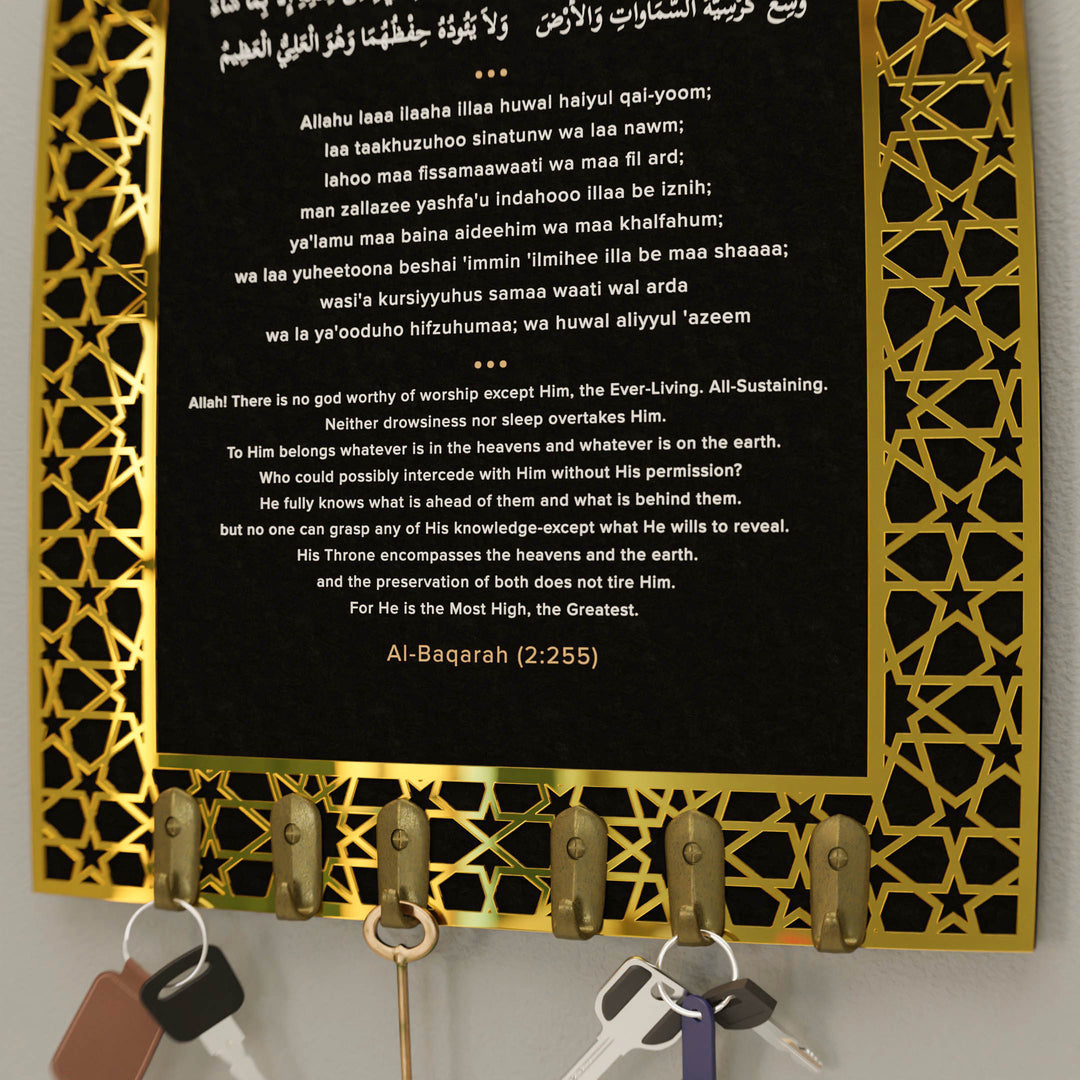 وَسِعَ كُرْسِيُّهُ السَّمَاوَاتِ وَالْأَرْضَ وَلَا يَئُودُهُ حِفْظُهُمَا وَهُوَ الْعَلِيُّ الْعَظِيمُ
Allahu laaa ilaaha illaa huwal haiyul qai-yoom;
laa taakhuzuhoo sinatunw wa laa nawm;
lahoo maa fissamaawaati wa maa fil ard;
man zallazee yashfa'u indahooo illaa be iznih;
ya'lamu maa baina aideehim wa maa khalfahum;
wa laa yuheetoona beshai 'immin 'ilmihee illa be maa shaaaa;
wasi'a kursiyyuhus samaa waati wal arda
wa la ya'ooduho hifzuhumaa; wa huwal aliyyul 'azeem
Allah! There is no god worthy of worship except Him, the Ever-Living. All-Sustaining.
Neither drowsiness nor sleep overtakes Him.
To Him belongs whatever is in the heavens and whatever is on the earth.
Who could possibly intercede with Him without His permission?
He fully knows what is ahead of them and what is behind them.
but no one can grasp any of His knowledge-except what He wills to reveal.
His Throne encompasses the heavens and the earth.
and the preservation of both does not tire Him.
For He is the Most High, the Greatest.
Al-Baqarah (2:255)